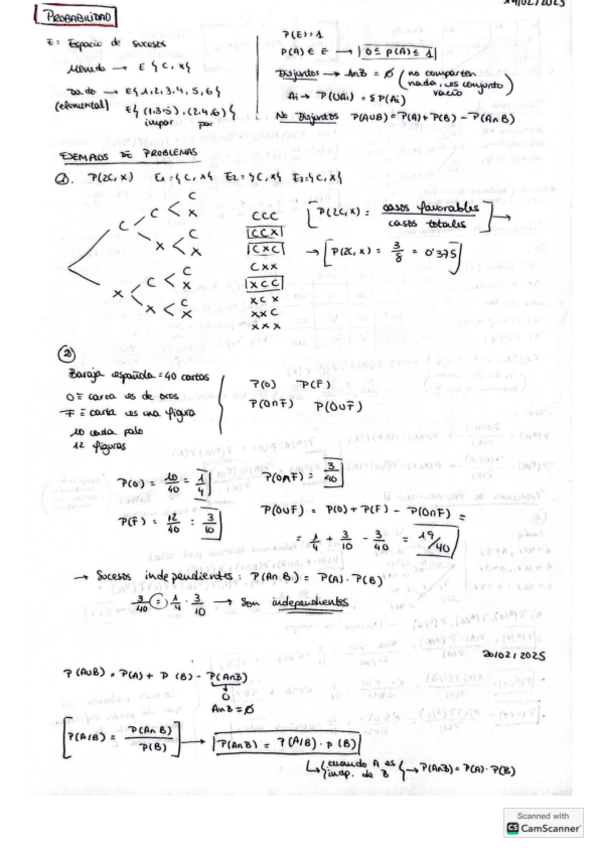 19/02/2025
PROBABILIDAD
E = Espacio de sucesos
Moneda → E {C, X}
Dado → E{1,2,3,4,5,6}
(elemental) E{(1,3,5), (2,4,6)}
impar par
P(E)=1
P(A) ∈ E → |0 ≤ P(A) ≤ 1|
Disjuntos → A∩B = ∅ (no comparten nada, es conjunto vacío)
Ai → P(UAi) = ΣP(Ai)
No Disjuntos P(A∪B) = P(A) + P(B) − P(A∩B)
EJEMPLOS DE PROBLEMAS
①. P(2C, X) E1={C, X} E2={C, X} E3={C, X}
C C C X
C X C X
X C C X
X X C X
CCC
CCX
CXC
CXX
XCC
XCX
XXC
XXX
[P(2C, X) = casos favorables / casos totales] →
→ [P(2C, X) = 3/8 = 0'375]
②
Baraja española = 40 cartas
O ≡ carta es de oros
F ≡ carta es una figura
10 cada palo
12 figuras
P(O) P(F)
P(O∩F) P(O∪F)
P(O) = 10/40 = 1/4
P(O∩F) = 3/40
P(F) = 12/40 = 3/10
P(O∪F) = P(O) + P(F) − P(O∩F) =
= 1/4 + 3/10 − 3/40 = 19/40
→ Sucesos independientes: P(A∩B) = P(A) · P(B)
3/40 = 1/4 · 3/10 → Son independientes
20/02/2025
P(A∪B) = P(A) + P(B) − P(A∩B)
↓
0
A∩B = ∅
[P(A/B) = P(A∩B) / P(B)] → |P(A∩B) = P(A/B) · P(B)|
↳ {cuando A es indep. de B} → P(A∩B) = P(A) · P(B)
Scanned with
CS CamScanner